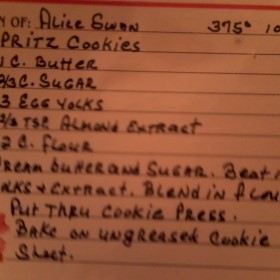 N OF: ALICE SWAN 375° 10
PRITZ COOKIES
1 C. BUTTER
2/3 C. SUGAR
3 EGG YOLKS
TSP ALMOND EXTRACT
2 C. FLOUR
REAM BUTTER AND SUGAR. BEAT I
LKS & EXTRACT. BLEND IN FLOU
PUT THRU COOKIE PRESS.
BAKE ON UNGREASED COOKIE
SHEET.